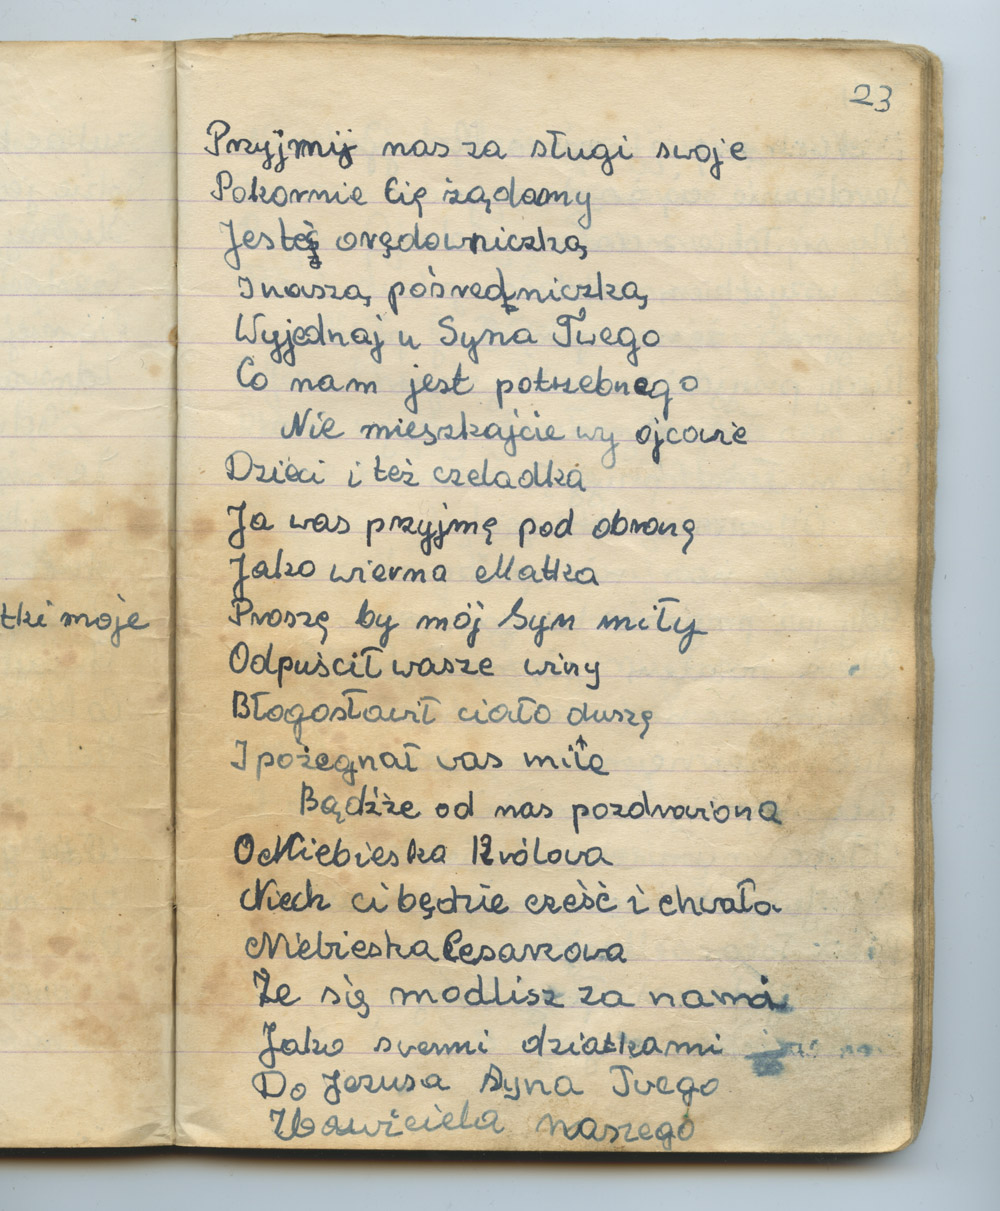 23
Przyjmij nas za sługi swoje
Pokornie Cię żądamy
Jesteś orędowniczką
I naszą pośredniczką
Wyjednaj u Syna Twego
Co nam jest potrzebnego
Nie mieszkajcie wy ojcowie
Dzieci i też czeladka
Ja was przyjmę pod obronę
Jako wierna Matka
tki moje
Proszę by mój Syn miły
Odpuścił wasze winy
Błogosławił ciało duszę
I pożegnał was mile
Bądźże od nas pozdrwiona
O Niebieska Królowa
Niech ci będzie cześć i chwała
Niebieska Cesarzowa
Że się modlisz za nami
Jako swemi dziatkami
Do Jezusa Syna Twego
Zbawiciela naszego